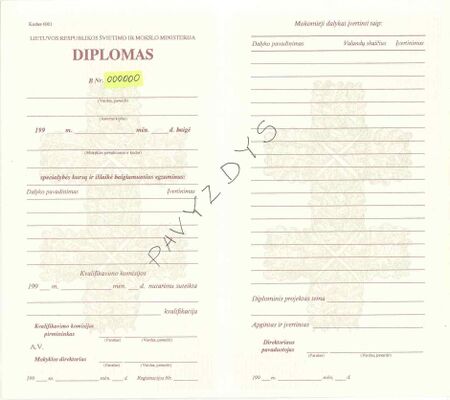 Kodas 6001
LIETUVOS RESPUBLIKOS ŠVIETIMO IR MOKSLO MINISTERIJA
DIPLOMAS
B Nr. 000000
(Vardas, pavardė)
(Asmens kodas)
199 m. mėn. d. baigė
(Mokyklos pavadinimas ir kodas)
specialybės kursą ir išlaikė baigiamuosius egzaminus:
Dalyko pavadinimas Įvertinimas
Kvalifikavimo komisijos
199 m. mėn. d. nutarimu suteikta
kvalifikacija
Kvalifikavimo komisijos
pirmininkas
(Parašas) (Vardas, pavardė)
A.V.
Mokyklos direktorius
(Parašas) (Vardas, pavardė)
199 m. mėn. d. Registracijos Nr.
PAVYZDYS
Mokomieji dalykai įvertinti taip:
Dalyko pavadinimas Valandų skaičius Įvertinimas
Diplominio projekto tema
Apgintas ir įvertintas
Direktoriaus
pavaduotojas
(Parašas) (Vardas, pavardė)
199 m. mėn. d.